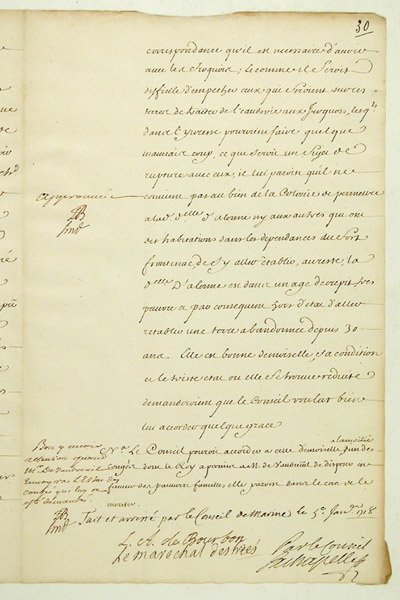 30
correspondance qu'il est necessaire d'avoir
avec les Iroquois; et comme il seroit
difficille d'empecher ceux que seroient sur ces
terres de traiter de l'eaudevie aux Iroquois, lesqls
dans l'yvresse pouroient faire quelque
mauvais coup, ce que seroit un sujet de
rupture avec eux, il luy paroit qu'il ne
convient pas au bien de la Colonie de permettre
a lad. delle d'alonne ny aux autres qui ont
des habitations dans les dependances du fort
frontenac, de s'y aller etablir, au reste, la
delle D'alonne est dans un age decrepit tres
pauvre et par consequent hors d'etat d'aller
retablir une terre abandonnée depuis 30
ans. Elle est bonne demoiselle, sa condition
et le triste etat ou elle se trouve reduite
demanderoient que le Conseil voulut bien
luy accorder quelque grace
approuvé
LAB
md
Na. Le Conseil pouroit accorder a cette demoiselle un des
congez dont le Roy a permis a M. de Vaudreuil de disposer en
faveur des pauvres familles, elle paroit dans le cas de le
Bon y mettre
attention quand
Mr. De Vaudreuil
Envoyera l'Estat des
congés qui luy ont
esté demandés.
LAB
md
Fait et arresté par le Conseil de Marine le 5e Janer. 1718
L. A. de Bourbon
Le marechal destrées
Par le Conseil
LaChapelle